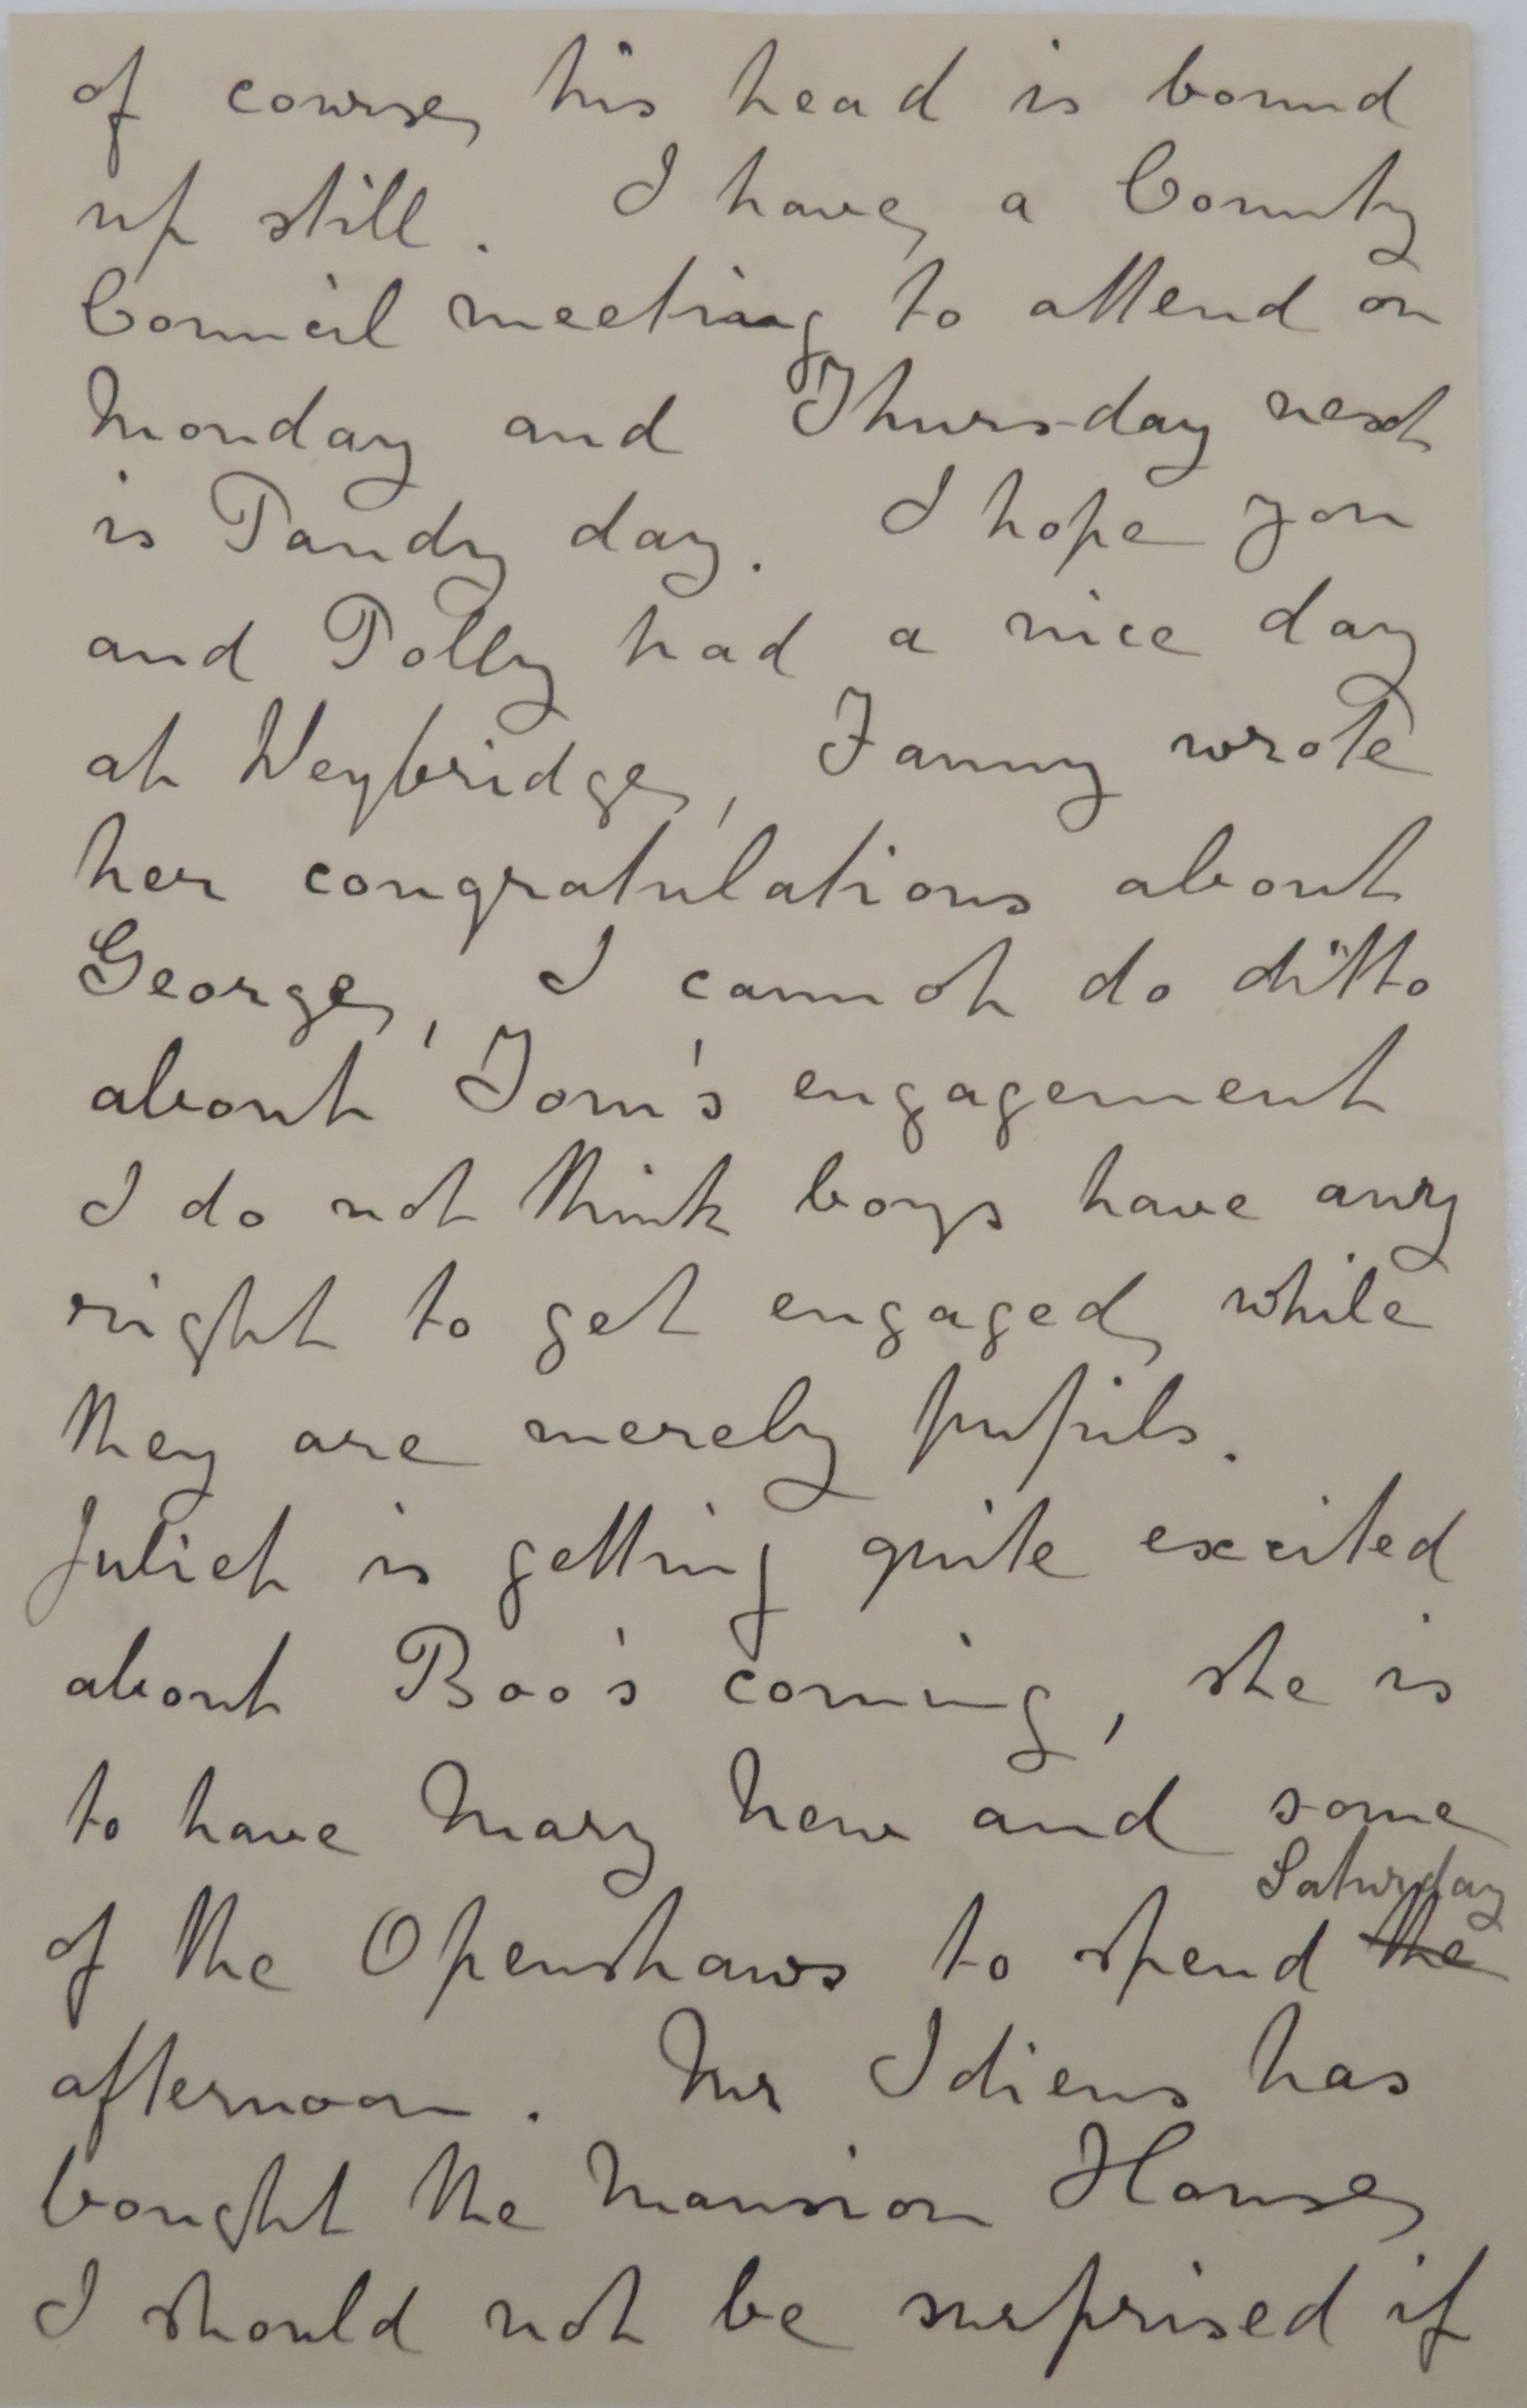 of course, his head is bound
up still. I have a County
Council meeting to attend on
Monday and Thursday next
is Tandy day. I hope you
and Polly had a nice day
at Weybridge, Fanny wrote
her congratulations about
George, I cannot do ditto
about Tom's engagement
I do not think boys have any
right to get engaged while
they are merely pupils.
Juliet is getting quite excited
about Boo's coming, she is
to have Mary New and some
Saturday
of the Openshaws to spend the
afternoon. Mr Idiens has
bought the Mansion House,
I should not be surprised if